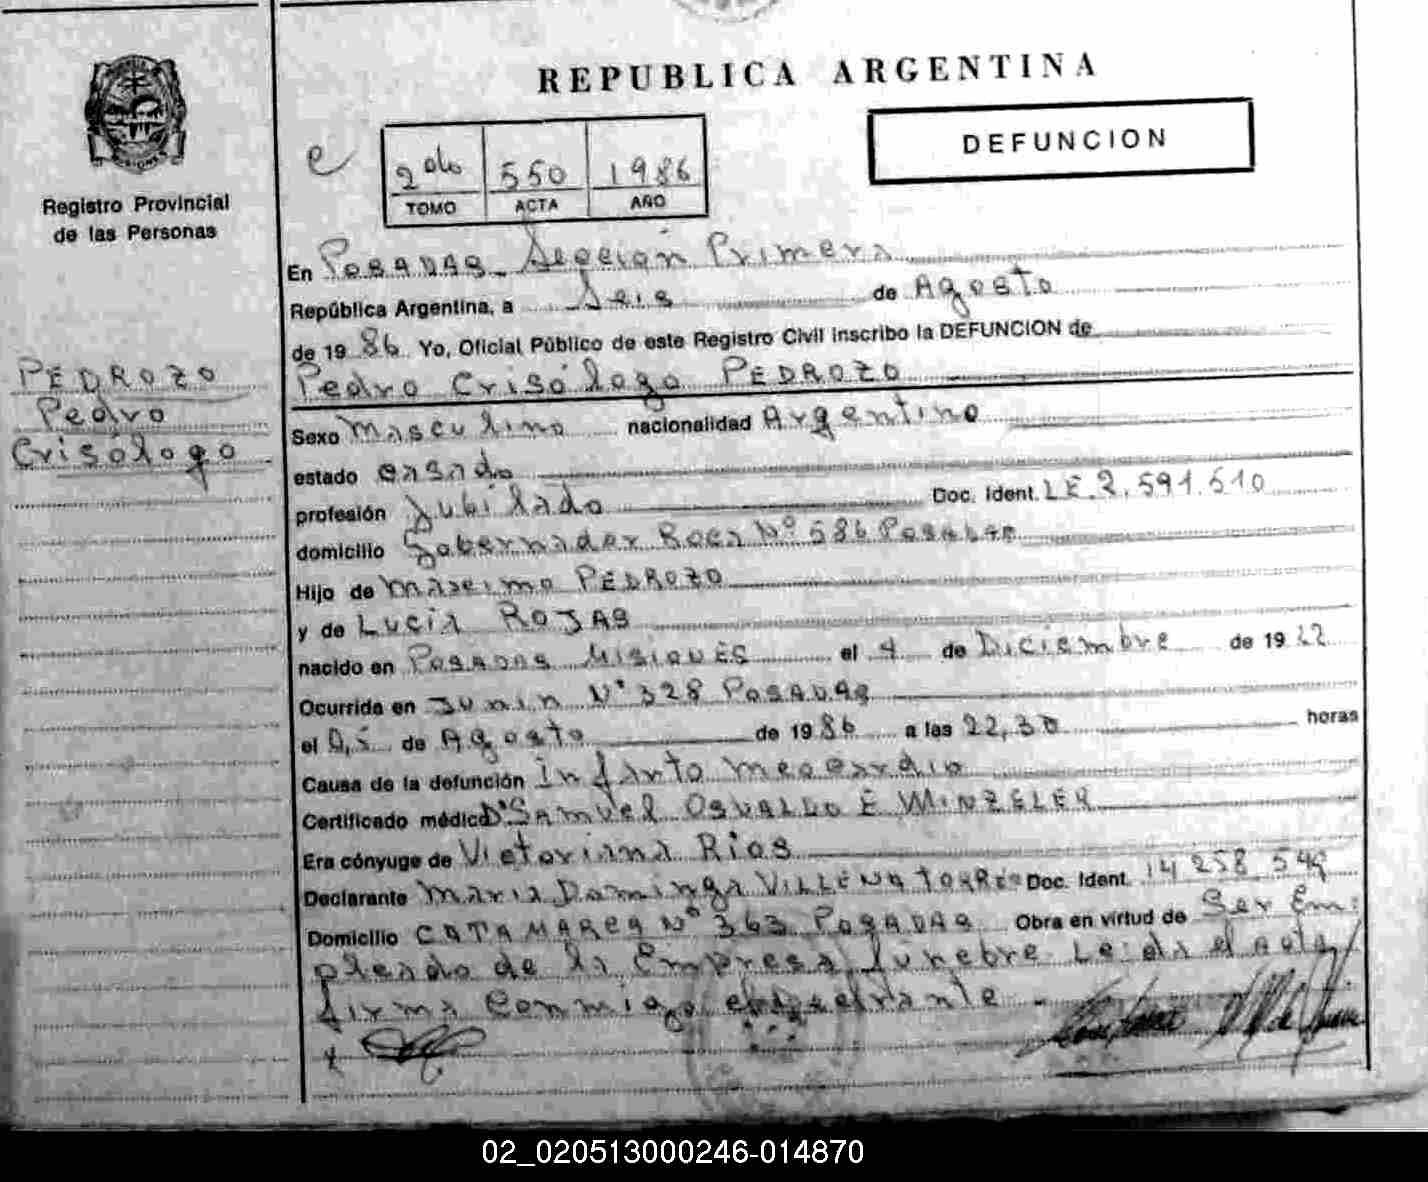 REPUBLICA ARGENTINA
DEFUNCION
e
2do 550 1986
TOMO ACTA AÑO
Registro Provincial
de las Personas
PEDROZO
Pedro
Crisólogo
En POSADAS Sección Primera
República Argentina, a Seis de Agosto
de 1986 Yo, Oficial Público de este Registro Civil inscribo la DEFUNCION de
Pedro Crisólogo PEDROZO
Sexo Masculino nacionalidad Argentino
estado casado
profesión Jubilado Doc. Ident. LE.2.591.610
domicilio Gobernador Roca Nº 586 Posadas
Hijo de Maximo PEDROZO
y de Lucia ROJAS
nacido en POSADAS MISIONES el 4 de Diciembre de 1922
Ocurrida en Junin Nº 328 POSADAS
el 05 de Agosto de 1986 a las 22,30 horas
Causa de la defunción Infarto meocardio
Certificado médico Dr SAMUEL OSVALDO E WINZELER
Era cónyuge de Victoriana Rios
Declarante Maria Dominga VILLENA TORRES Doc. Ident. 14 258 549
Domicilio CATAMARCA Nº 363 POSADAS Obra en virtud de Ser Em:
pleado de la Empresa funebre. Leida el Acta
firma Conmigo
x
02_020513000246-014870